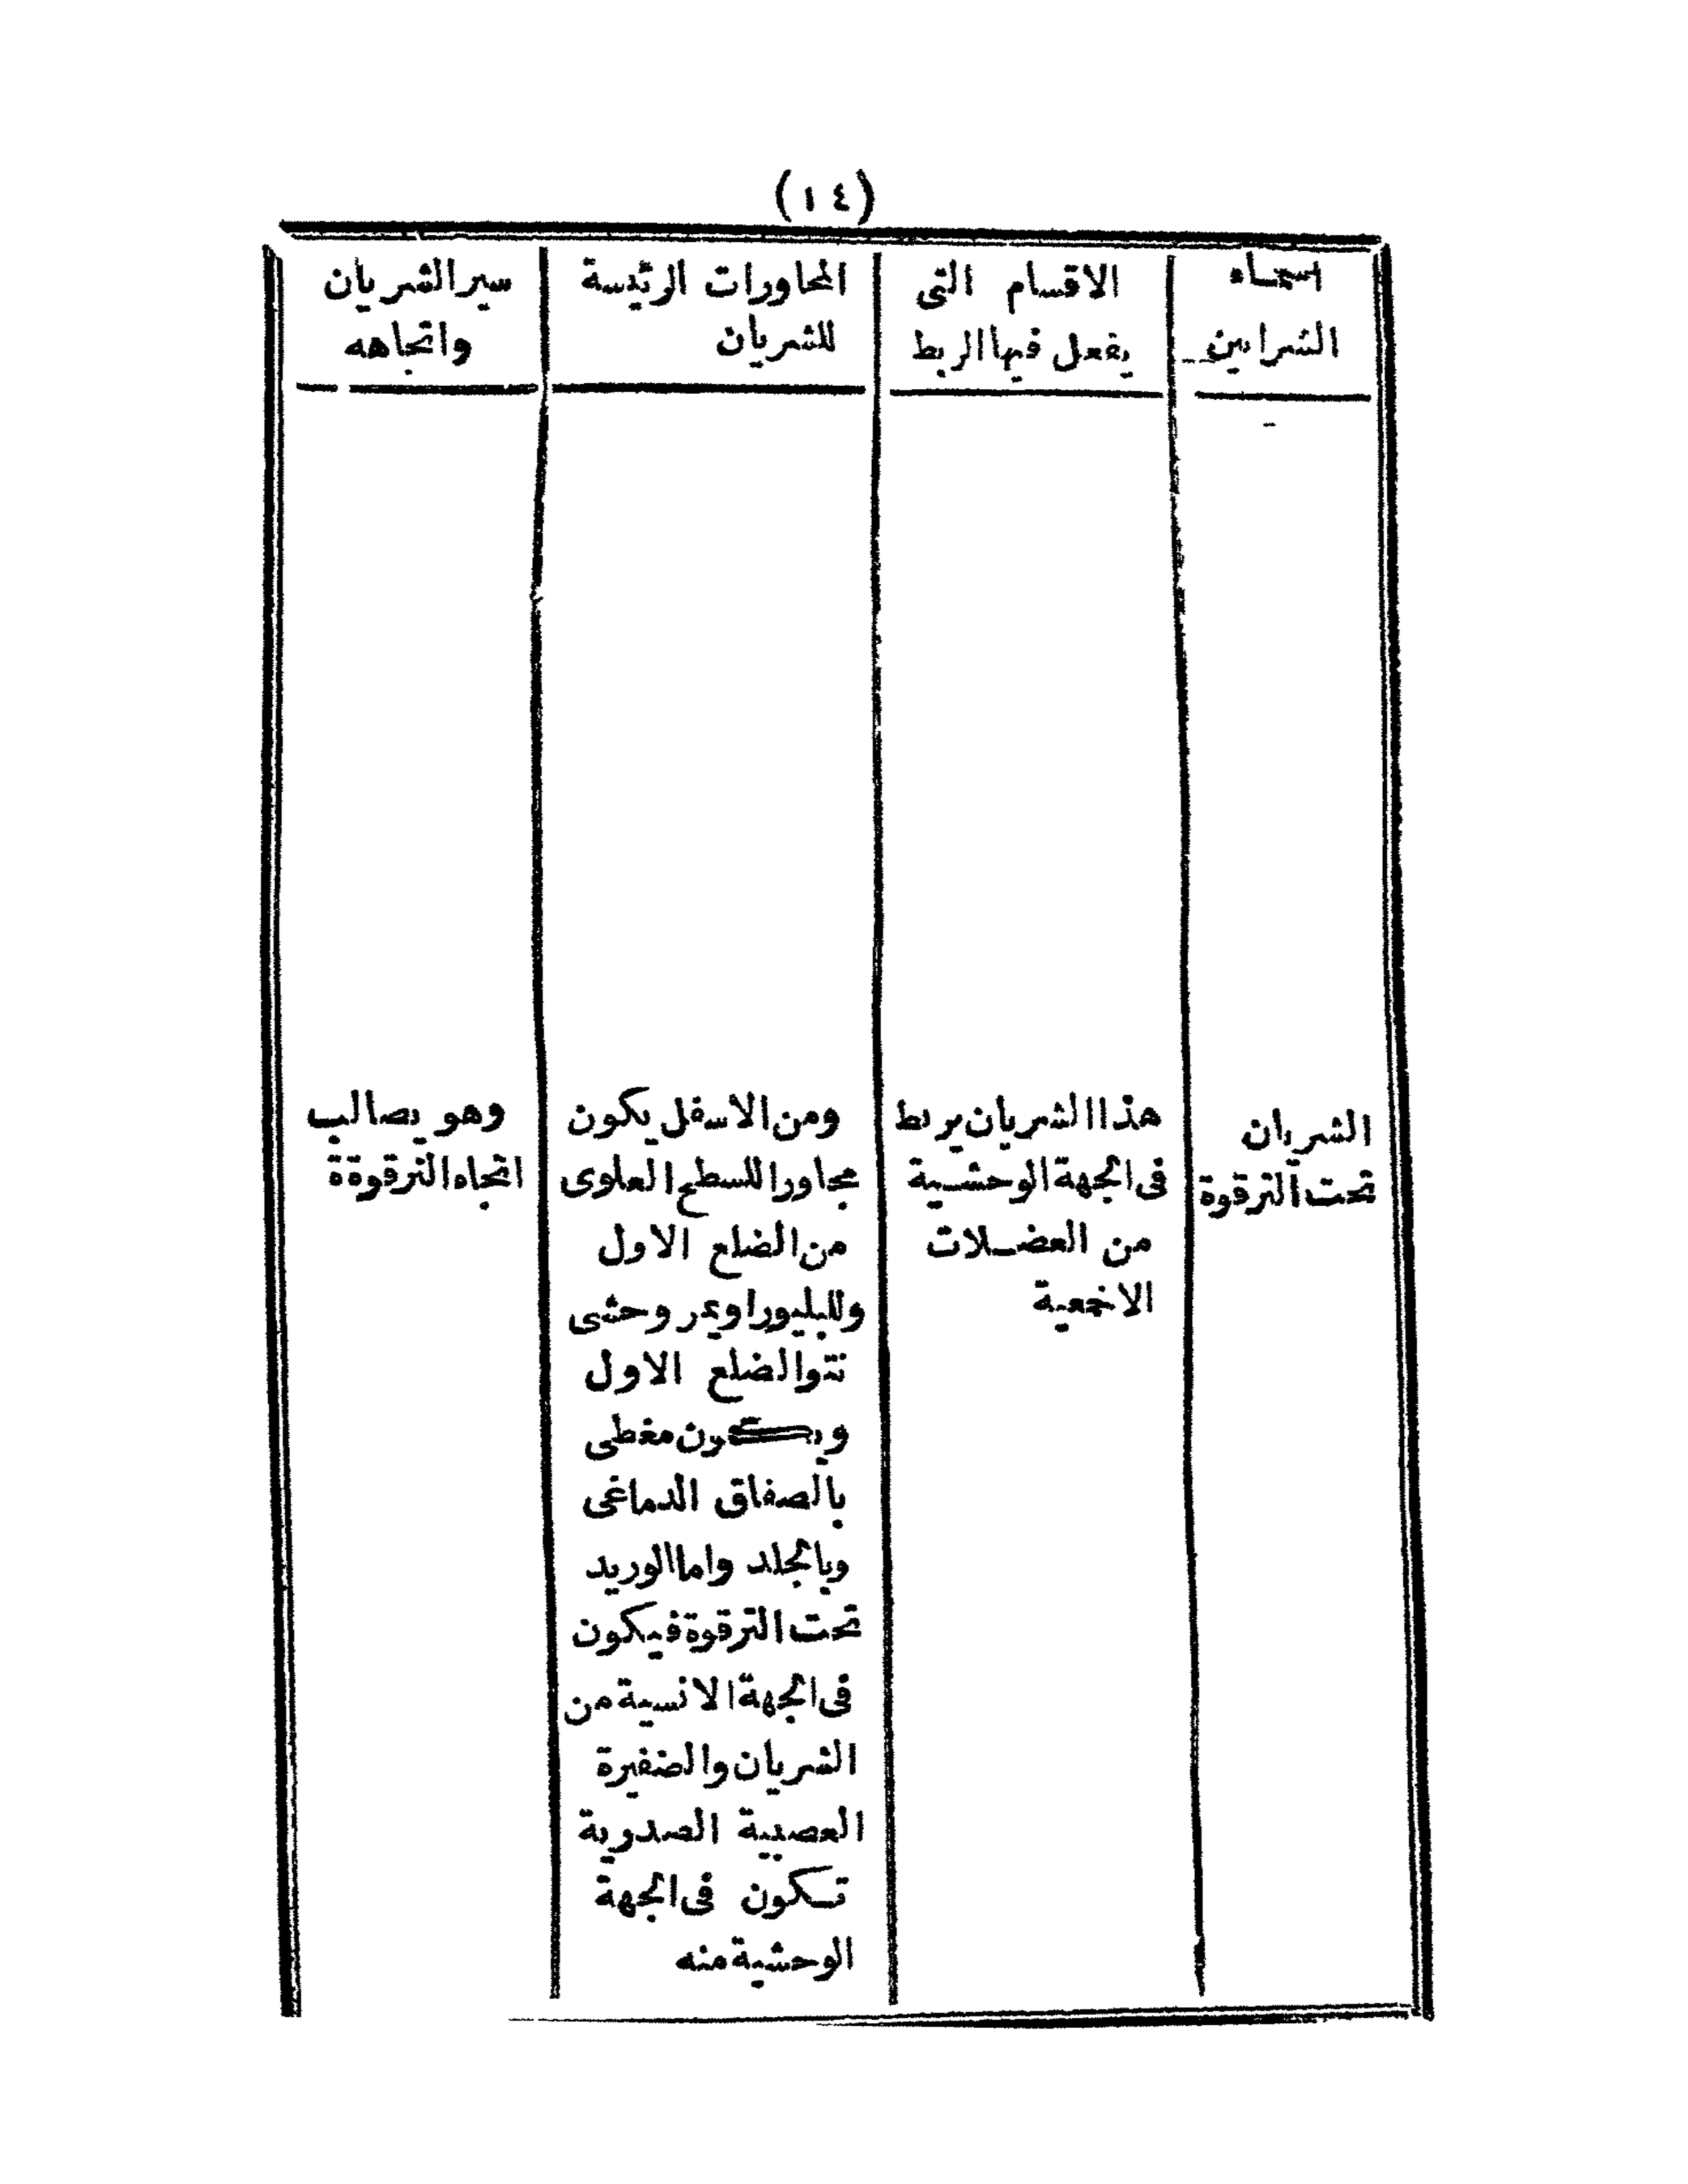 (١٤)
اسماء
الشرايين
الاقسام التى
يفعل فيها الربط
المجاورات الرئيسة
للشريان
سير الشريان
واتجاهه
الشريان
تحت الترقوة
هذا الشريان يربط
فى الجهة الوحشية
من العضلات
الاخمعية
ومن الاسفل يكون
مجاورا للسطح العلوى
من الضلع الاول
وللبليورا ويمر وحشى
نتو الضلع الاول
ويكون مغطى
بالصفاق الدماغى
وبالجلد واما الوريد
تحت الترقوة فيكون
فى الجهة الانسية من
الشريان والضفيرة
العصبية الصدرية
تكون فى الجهة
الوحشية منه
وهو يصالب
اتجاه الترقوة